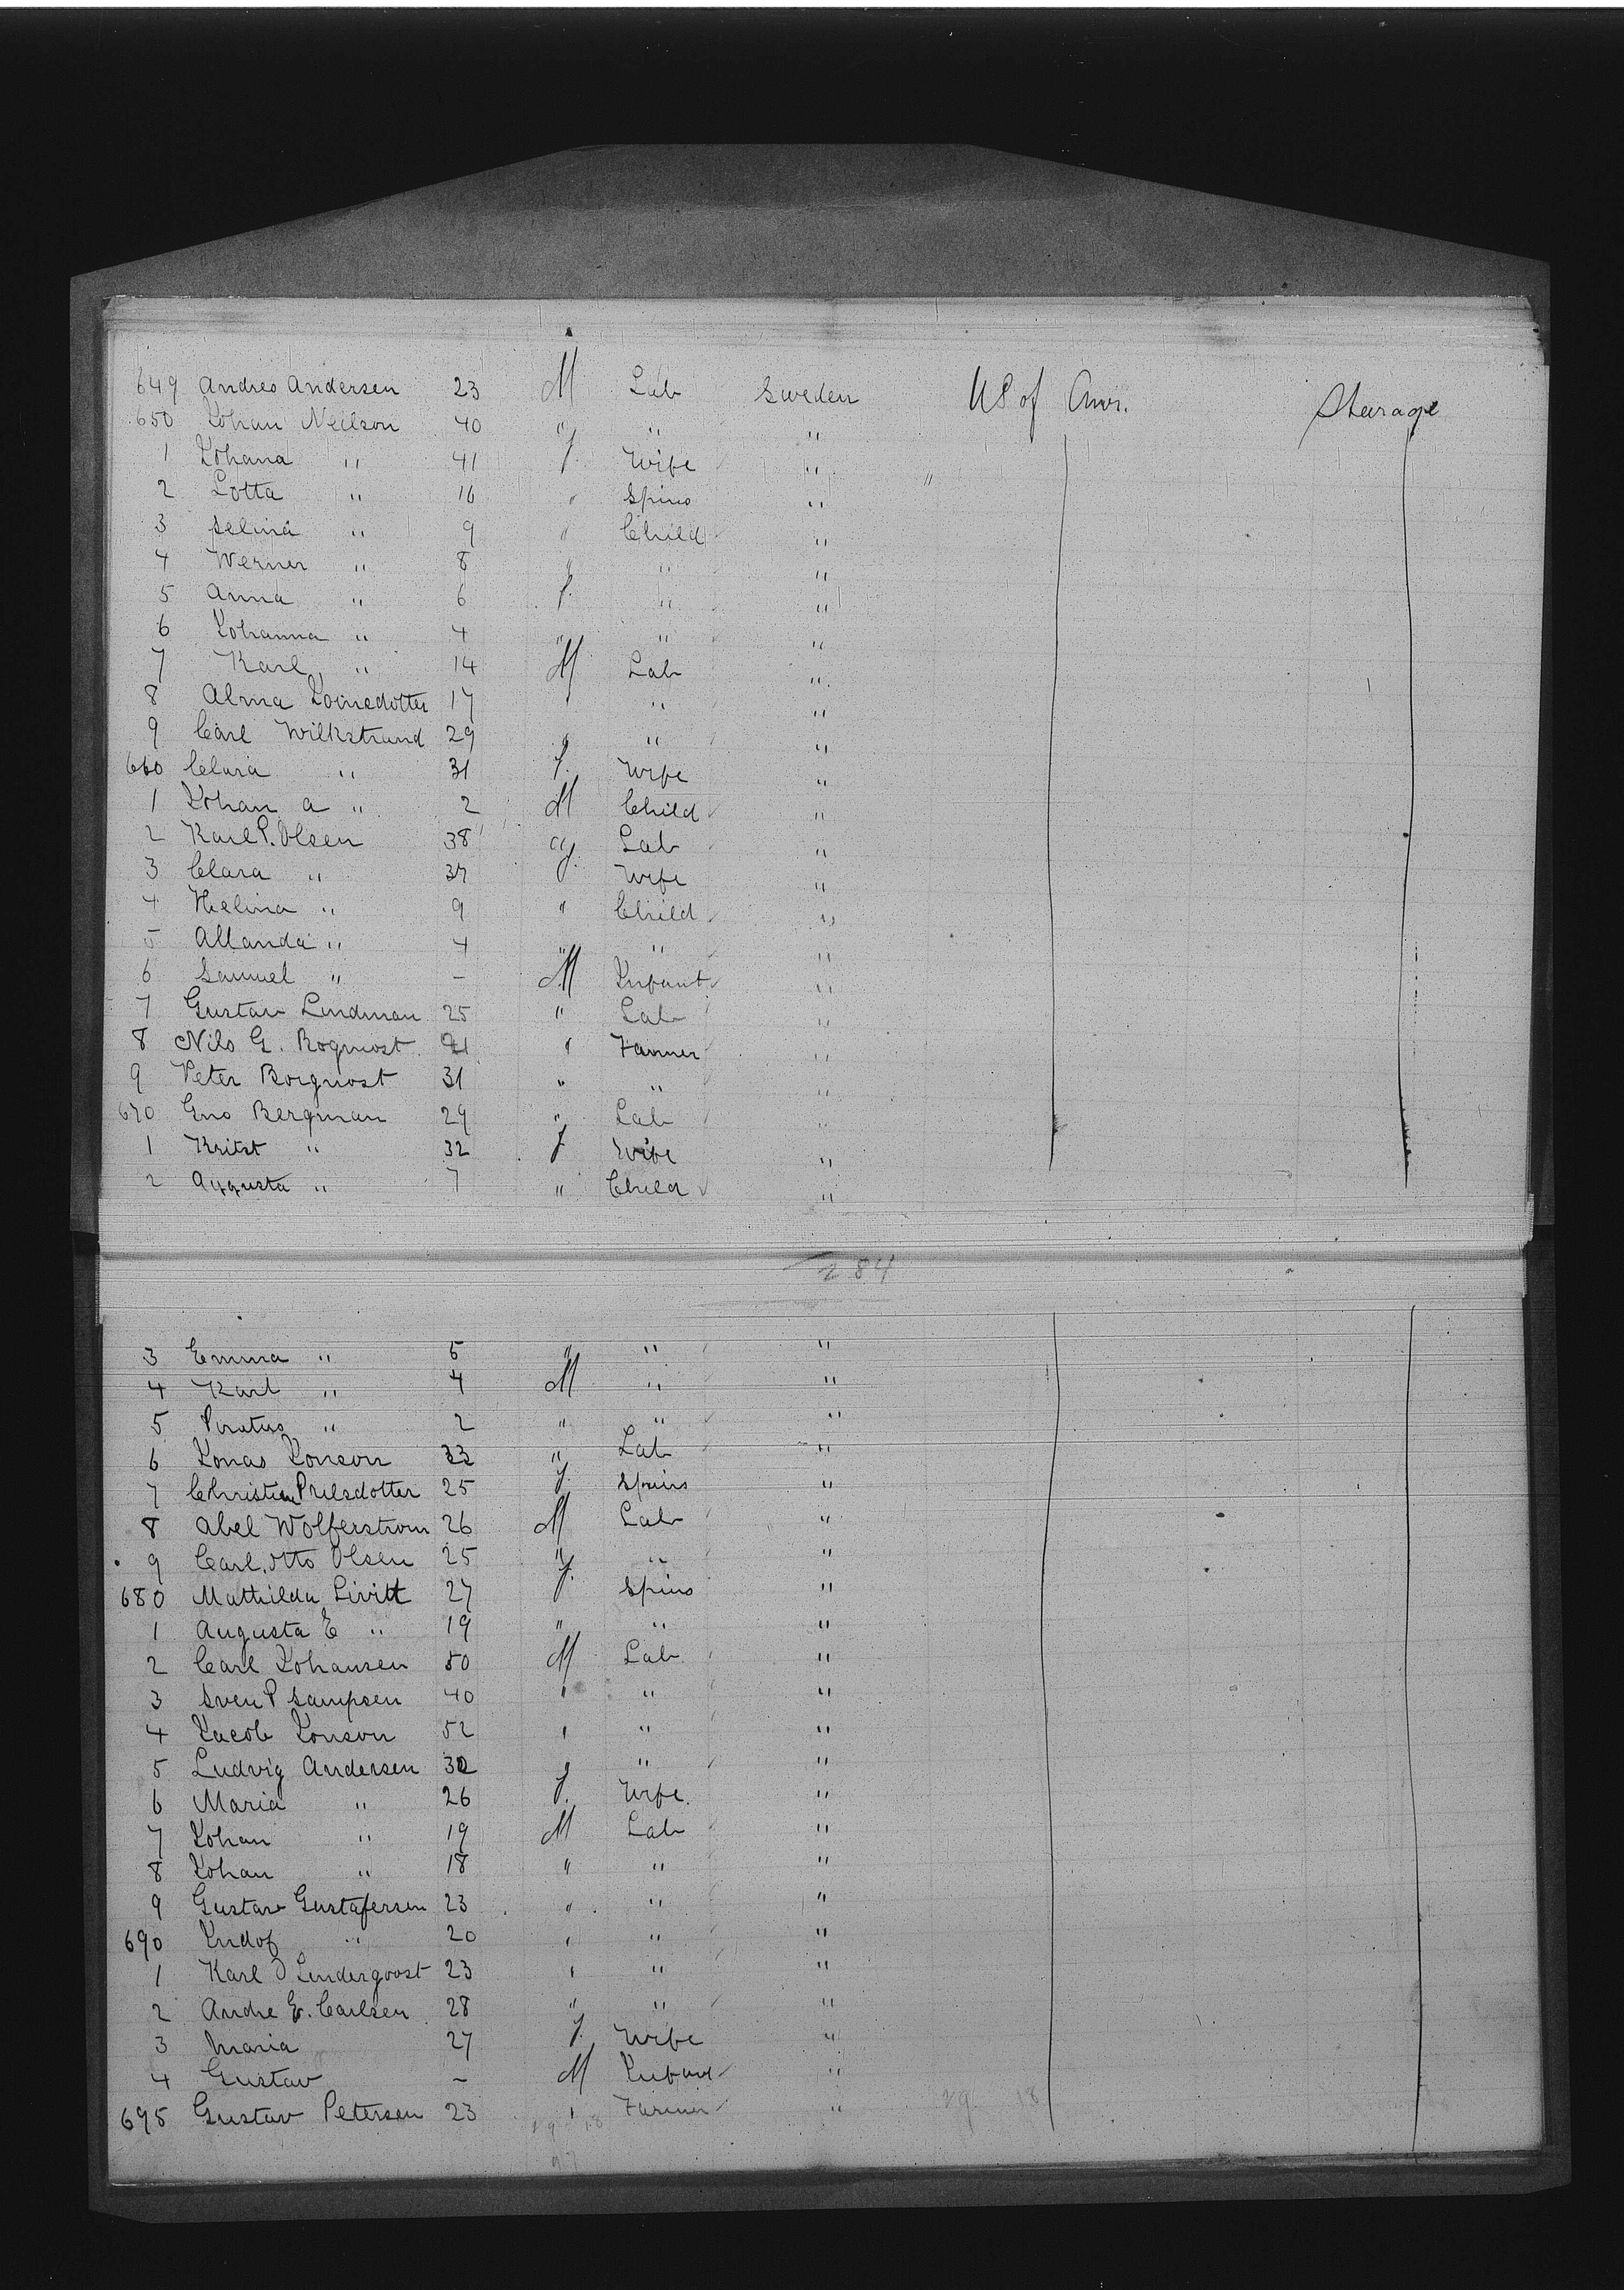 649 Andres Andersen 23 M Lab Sweden US of Amr. Stearage
650 Johan Neilson 40 " " "
1 Johana " 41 f. Wife " "
2 Lotta " 16 " Spins "
3 Selina " 9 " Child "
4 Werner " 8 " " "
5 Anna " 6 f. " "
6 Johanna " 4 " " "
7 Karl " 14 M Lab "
8 Alma 17 " " "
9 Carl Wilkstrand 29 " " "
660 Clara " 31 f. Wife "
1 Johan A " 2 M Child "
2 Karl P. Olsen 38 Lab "
3 Clara " 37 f. Wife "
4 Helina " 9 " Child "
5 Allanda " 4 " " "
6 Samuel " - M Infant "
7 Gustav Lindman 25 " Lab "
8 Nils G. Rogmost 21 " Farmer "
9 Peter Borgnost 31 " " "
670 Gno Bergman 29 " Lab "
1 Krist " 32 f Wife "
2 Augusta " 7 " Child "
284
3 Emma " 5 " " "
4 Karl " 4 M " "
5 " 2 " " "
6 Jonas Jonson 33 " Lab "
7 Christien Prilsdotter 25 f. Spins "
8 Abel Wolferstrom 26 M Lab "
9 Carl Otto Olsen 25 " " "
680 Mathilda Livitt 27 f. Spins "
1 Augusta E " 19 " " "
2 Carl Johansen 50 M Lab "
3 Sven P Sampsen 40 " " "
4 Jacob Jonson 52 " " "
5 Ludvig Andersen 30 " " "
6 Maria " 26 f. Wife. "
7 Johan " 19 M Lab "
8 Johan " 18 " " "
9 Gustav Gustafersen 23 " " "
690 " 20 " " "
1 Karl O Lindergoost 23 " " "
2 Andre G. Carlsen 28 " " "
3 Maria 27 f. Wife "
4 Gustav - M Infant "
695 Gustav Petersen 23 " Farmer " 29 18
29 18
97